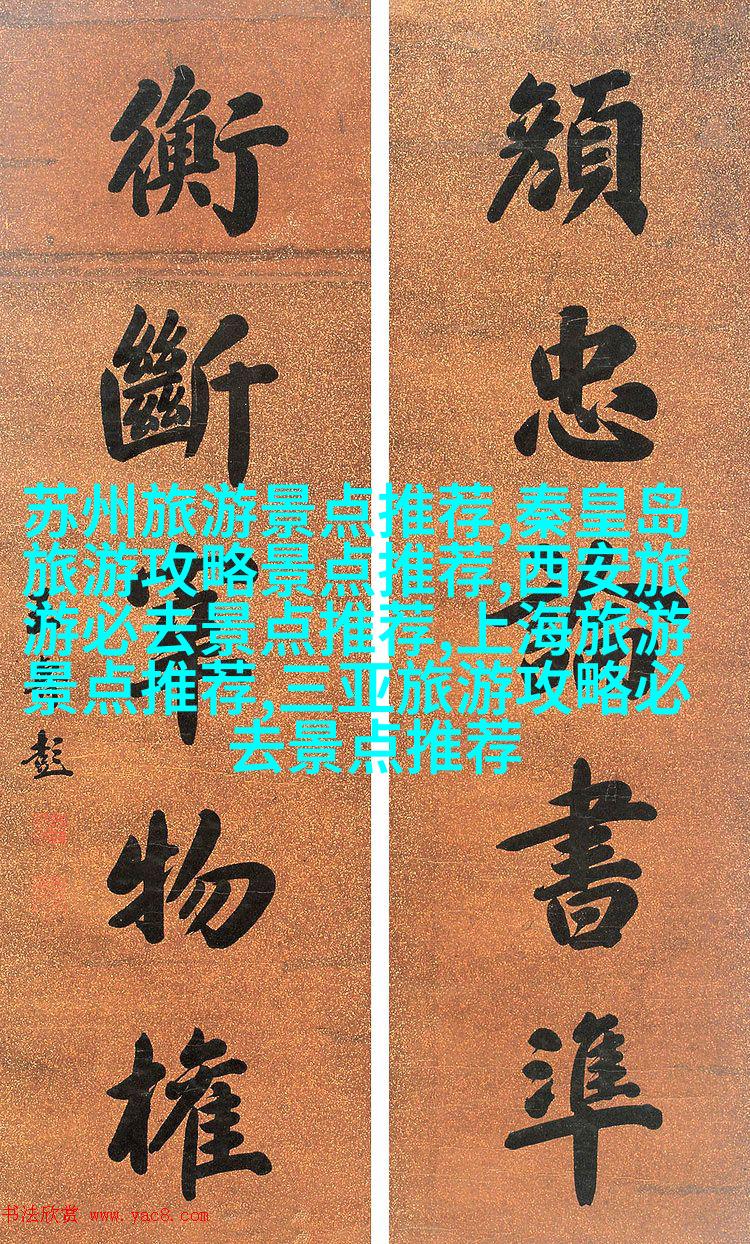 顏
忠
書
準
衡
斷
物
權
彭
苏州旅游景点推荐,秦皇岛
旅游攻略景点推荐,西安旅
游必去景点推荐,上海旅游
景点推荐,三亚旅游攻略必
去景点推荐
书法欣赏 www.yac8.com